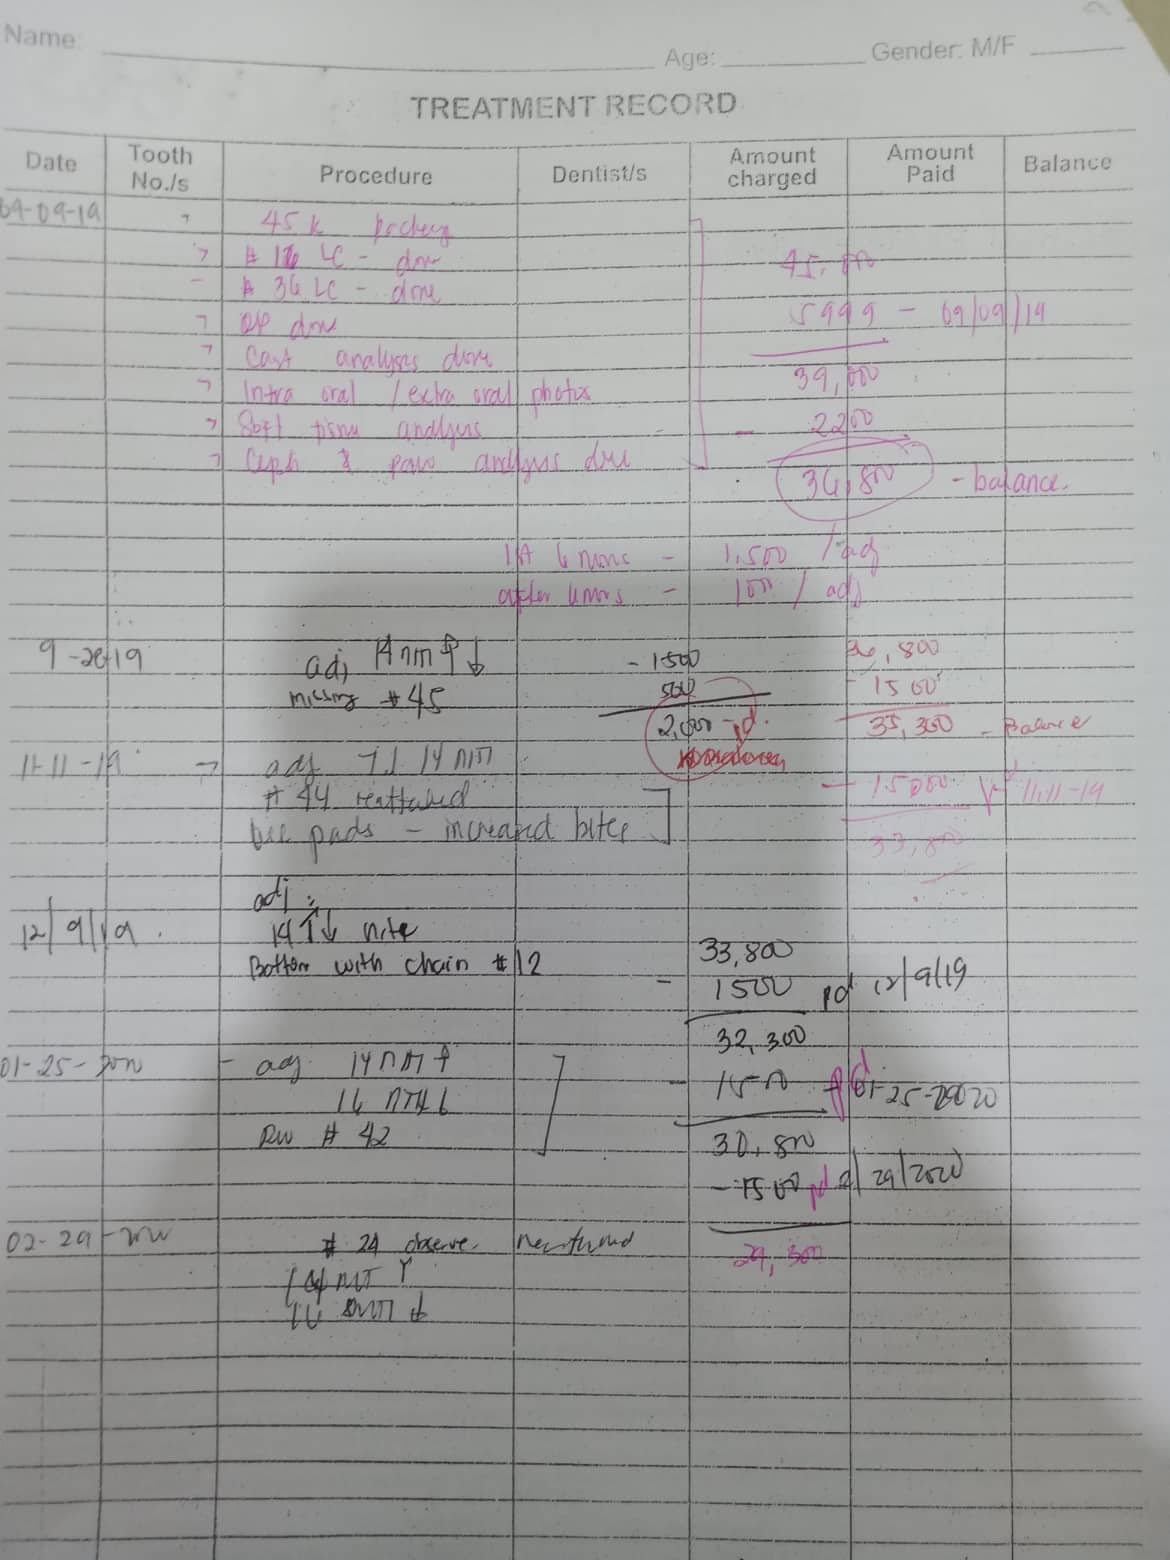 Name:
Age:
Gender: M/F
TREATMENT RECORD
Date Tooth No./s Procedure Dentist/s Amount charged Amount Paid Balance
09-09-19 45k
# 16 LC - done
# 36 LC - done
45,000
OP done
5999 - 09/09/19
Cast analysis done
Intra oral / extra oral photos
39,000
Soft tissue analysis
- 2200
Ceph & pano analysis done
36,800 - balance.
1st 6 mons - 1,500 / adj
after 6mos - 1000 / adj
9-26-19 adj 14 nm ↑↓ - 1500 36,800
missing #45 500 - 1500
2,000 pd. 35,300 - Balance
11-11-19 adj ↑↓ 14 niti
# 44 reattached - 15000 pd 11-11-19
pads - increased bite
33,800
adj:
12/9/19 14 ↑↓ nite
Bottom with chain #12 33,800
- 1500 pd 12/9/19
32,300
01-25-2020 - adj 14 niti ↑
16 niti ↓ - 1500 pd 01-25-2020
# 42 30,800
- 1500 pd 2/29/2020
02-29-2020 # 24 observe.
29,300
14 niti ↑
16 niti ↓